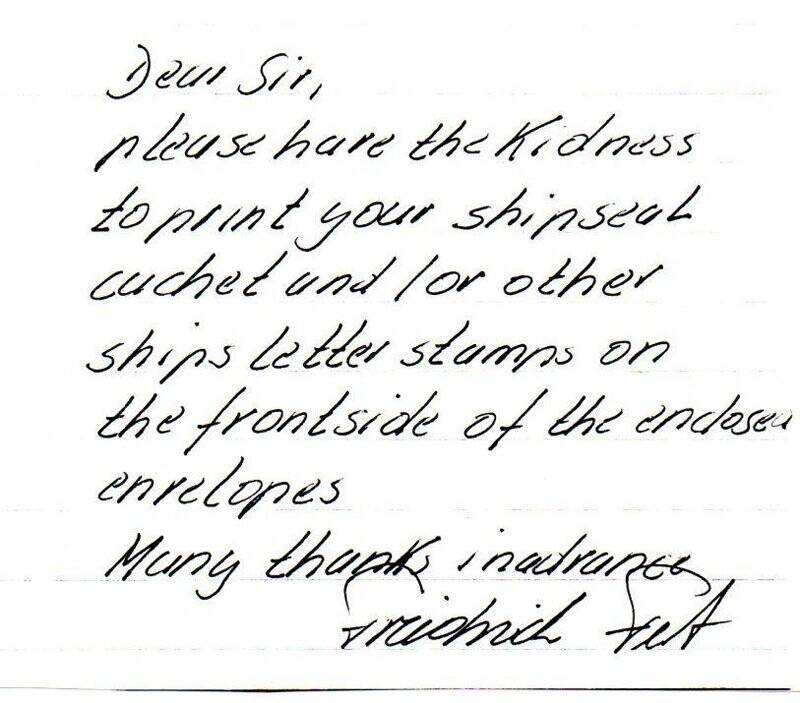 Dear Sir,
please have the Kidness
to print your shipseal
cachet and/or other
ships letter stamps on
the frontside of the enclosed
envelopes
Many thanks inadvance
Friedrich